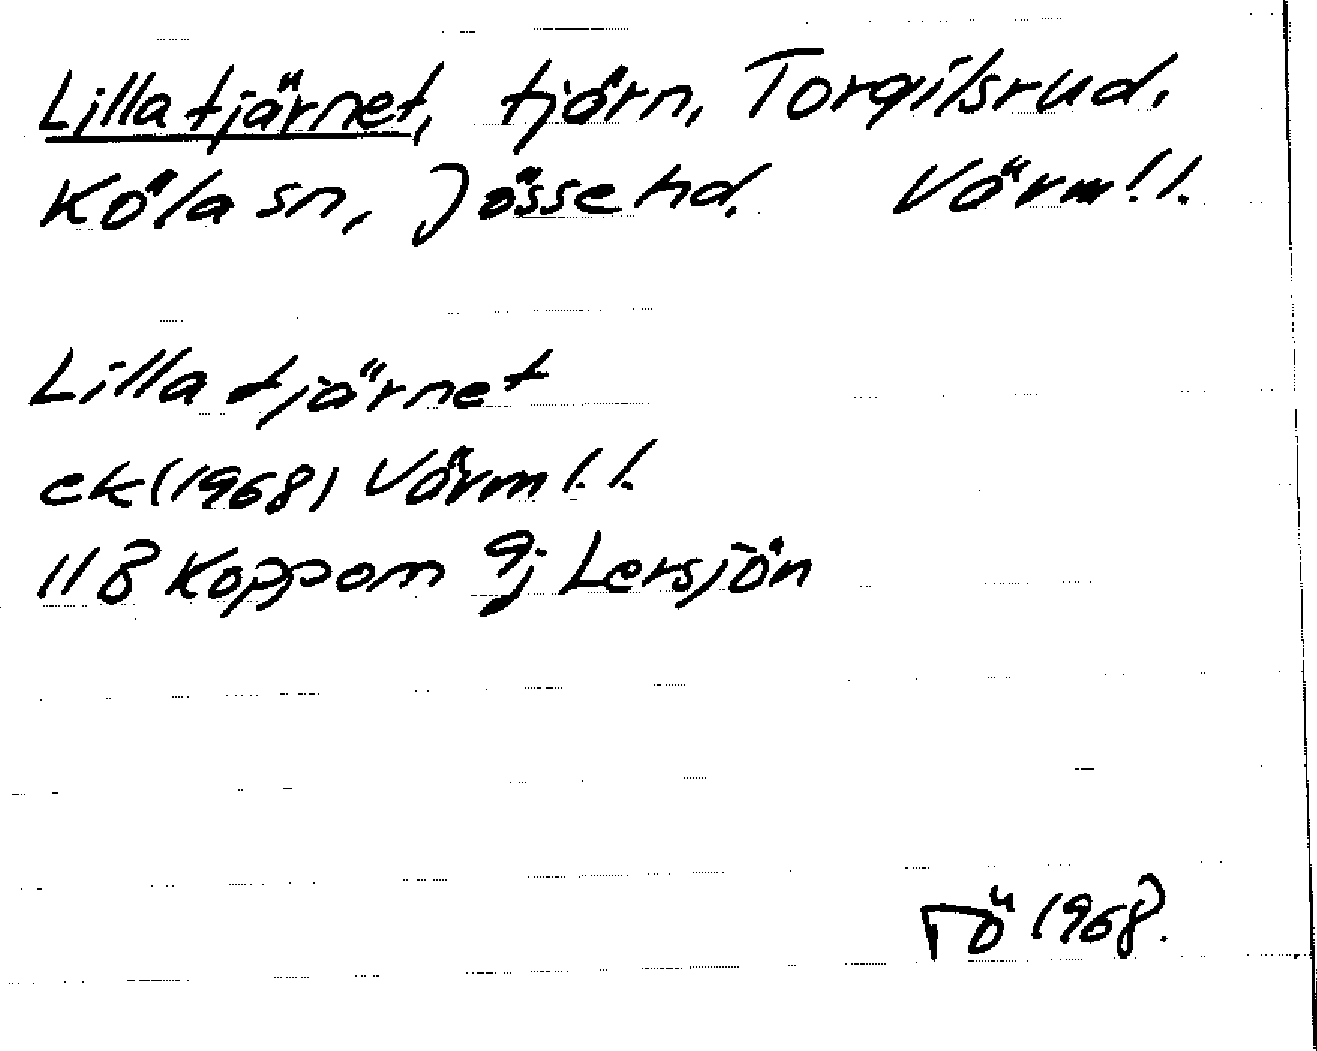 Lilla tjärnet, tjärn, Torgilsrud,
Köla sn, Jösse hd. Värml.l.
Lilla tjärnet
ek (1968) Värml.l.
11B Koppom 9j Lersjön
TÖ 1968.